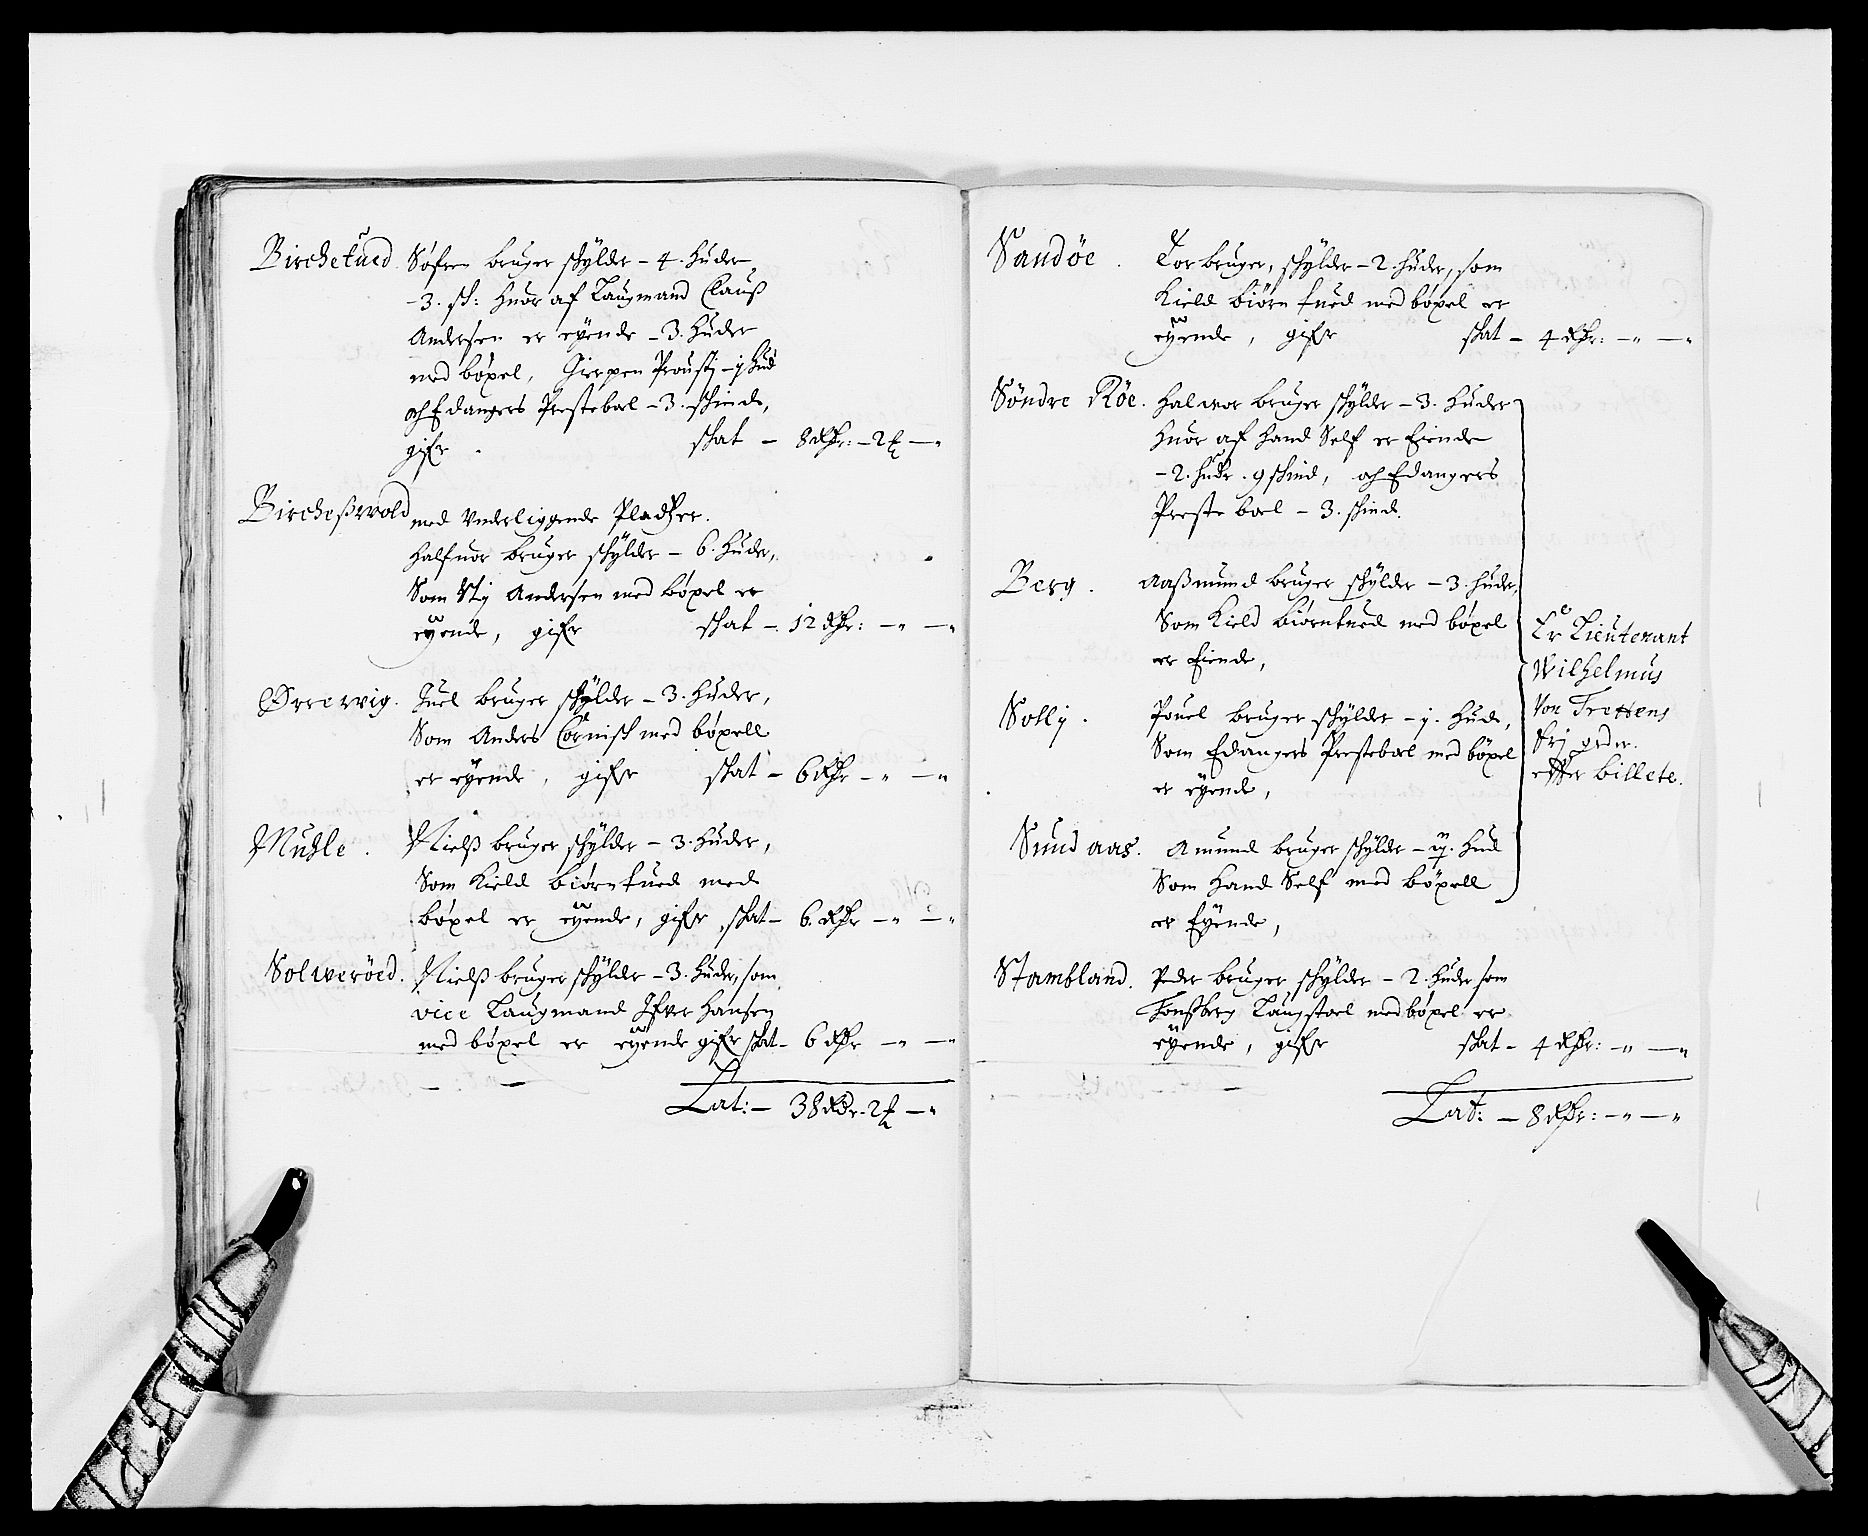 Birchetued. Søfren bruger schylder – 4. huder
– 3. sch: huor af Laugmand Clauß
Andersen er eyende – 3. huder
med bøxel, Gierpen Proustj – j hud
och Edangers Prestebol – 3. schinds,
gifr schat – 8 Rdr: – 2 ℔ – "
Bircheßwold med Vnderliggende Pladtzer.
Halfuor bruger schylder – 6. huder,
Som Stij Andersen med bøxel er
eyende, gifr schat – 12 Rdr: – " – "
Ørrewig. Juel bruger schylder – 3. huder,
Som Anders Cornisch med bøxell
er eyende, gifr schat – 6 Rdr – " – "
Muhle. Nielß bruger schylder – 3. huder,
Som Kield Biørntued med
bøxel er eyende, gifr schat – 6. Rdr – " – "
Solweröed. Nielß bruger schylder – 3. huder, som
vice Laugmand Ifver Hansen
med bøxel er eyende gifr schat – 6 Rdr – " – "
Lat: – 38 Rdr. 2 ℔ – "
Sandöe. Tor bruger, schylder – 2. huder, som
Kield Biørntued med bøxel er
eyende, gifr schat – 4 Rdr: – " – "
Söndre Röe. Halwor bruger schylder – 3. huder
huor af hand Self er Eiende
– 2. huder. 9 schind, och Edangers
Prestebol – 3. schind.
Berg. Aaßmund bruger schylder – 3. huder,
Som Kield Biørntued med bøxel
er Eiende,
Sollj. Pouel bruger schylder – j. hud,
Som Edangers Prestebol med bøxel
er eyende,
Sundaas. Amund bruger schylder – ij. hud
Som hand Self med bøxell
er Eyende,
Er Lieutenant
Wilhelmus
Von Trettens
frj
effter billete.
Stambland. Peder bruger schylder – 2. huder som
Tonsberg Laugstoel med bøxel er
eyende, gifr schat – 4 Rdr: – " – "
Lat: – 8 Rdr: – " – "